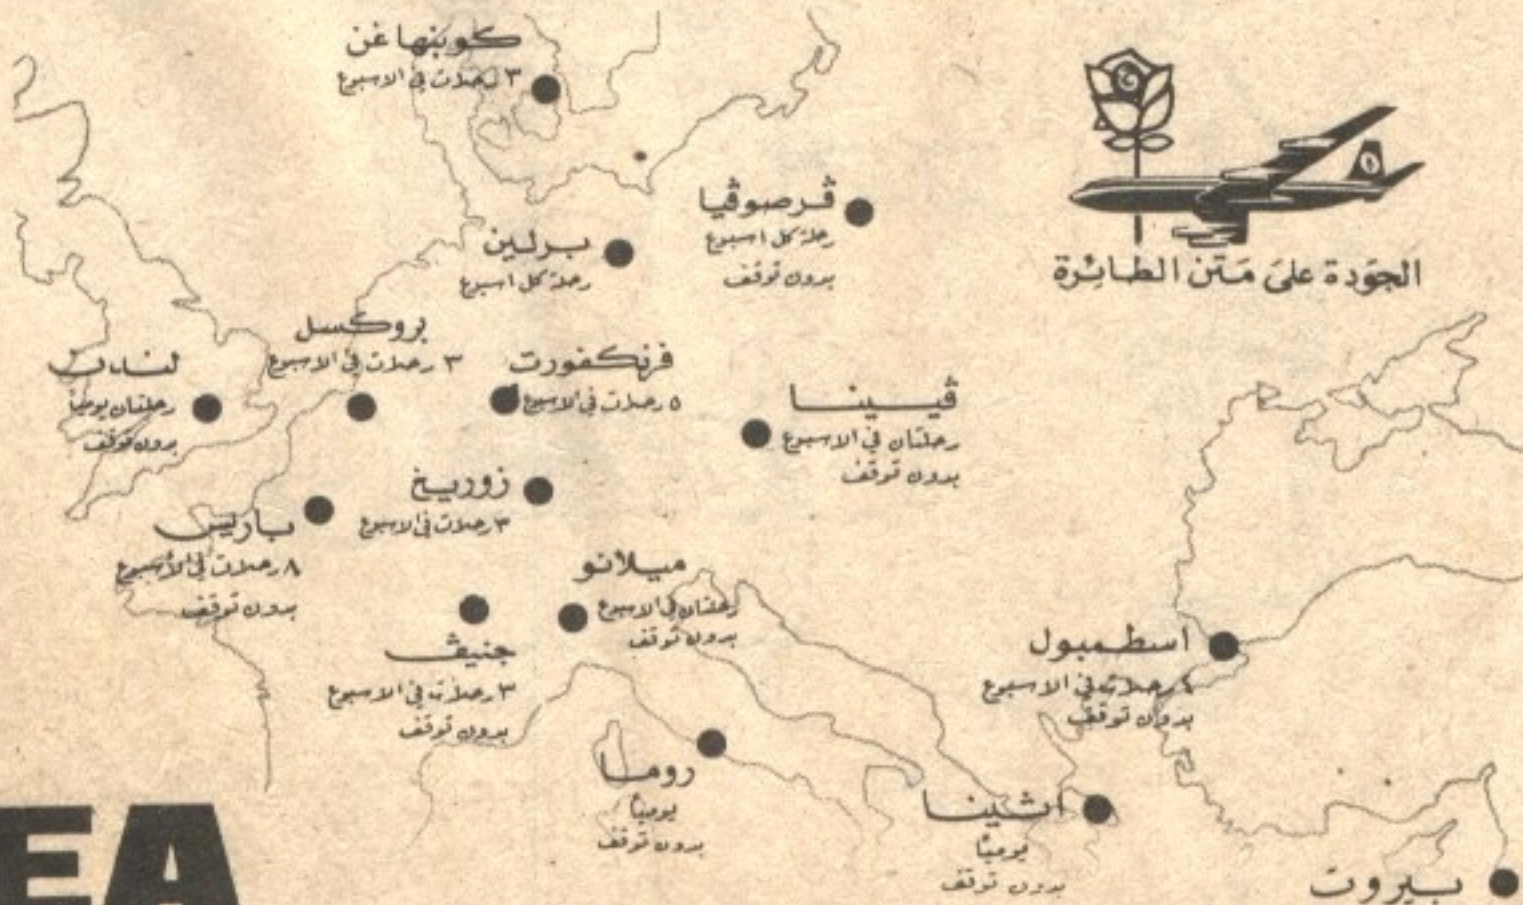 كوبنهاغن
٣ رحلات في الاسبوع
ڤرصوڤيا
رحلة كل اسبوع
بدون توقف
برلين
رحلة كل اسبوع
الجَودة على مَتن الطائِرة
بروكسل
٣ رحلات في الاسبوع
لندن
رحلتان يومياً
بدون توقف
فرنكفورت
٥ رحلات في الاسبوع
ڤيينا
رحلتان في الاسبوع
بدون توقف
زوريخ
٣ رحلات في الاسبوع
باريس
٨ رحلات في الأسبوع
بدون توقف
ميلانو
رحلتان في الاسبوع
بدون توقف
جنيڤ
٣ رحلات في الاسبوع
بدون توقف
اسطمبول
رحلات في الاسبوع
بدون توقف
روما
يومياً
بدون توقف
اثينا
يومياً
بدون توقف
بيروت
EA